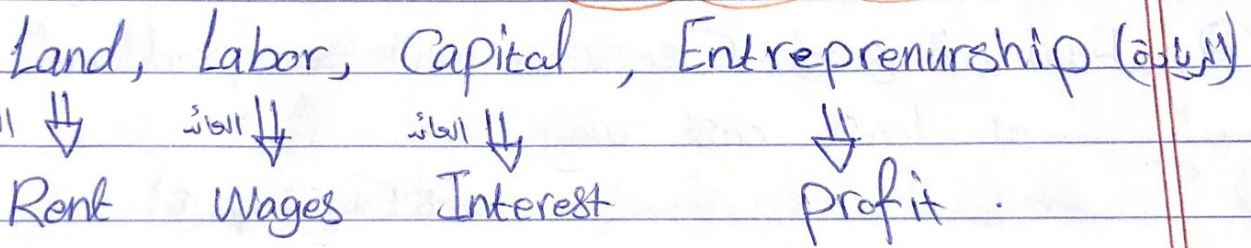 Land, Labor, Capital, Entreprenurship (الريادة)
⇓ العائد ⇓ العائد ⇓ ⇓
Rent Wages Interest profit.